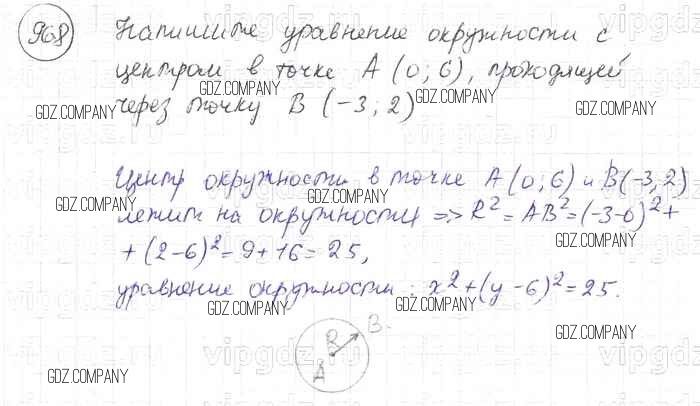 968 Напишите уравнение окружности с
центром в точке A (0; 6), проходящей
через точку B (-3; 2)
Центр окружности в точке A (0; 6) и B(-3; 2)
лежит на окружности => R² = AB² = (-3-0)² +
+ (2-6)² = 9 + 16 = 25,
уравнение окружности: x² + (y - 6)² = 25.
R B
A
GDZ.COMPANY
GDZ.COMPANY
GDZ.COMPANY
GDZ.COMPANY
GDZ.COMPANY
GDZ.COMPANY
GDZ.COMPANY
GDZ.COMPANY
GDZ.COMPANY
GDZ.COMPANY